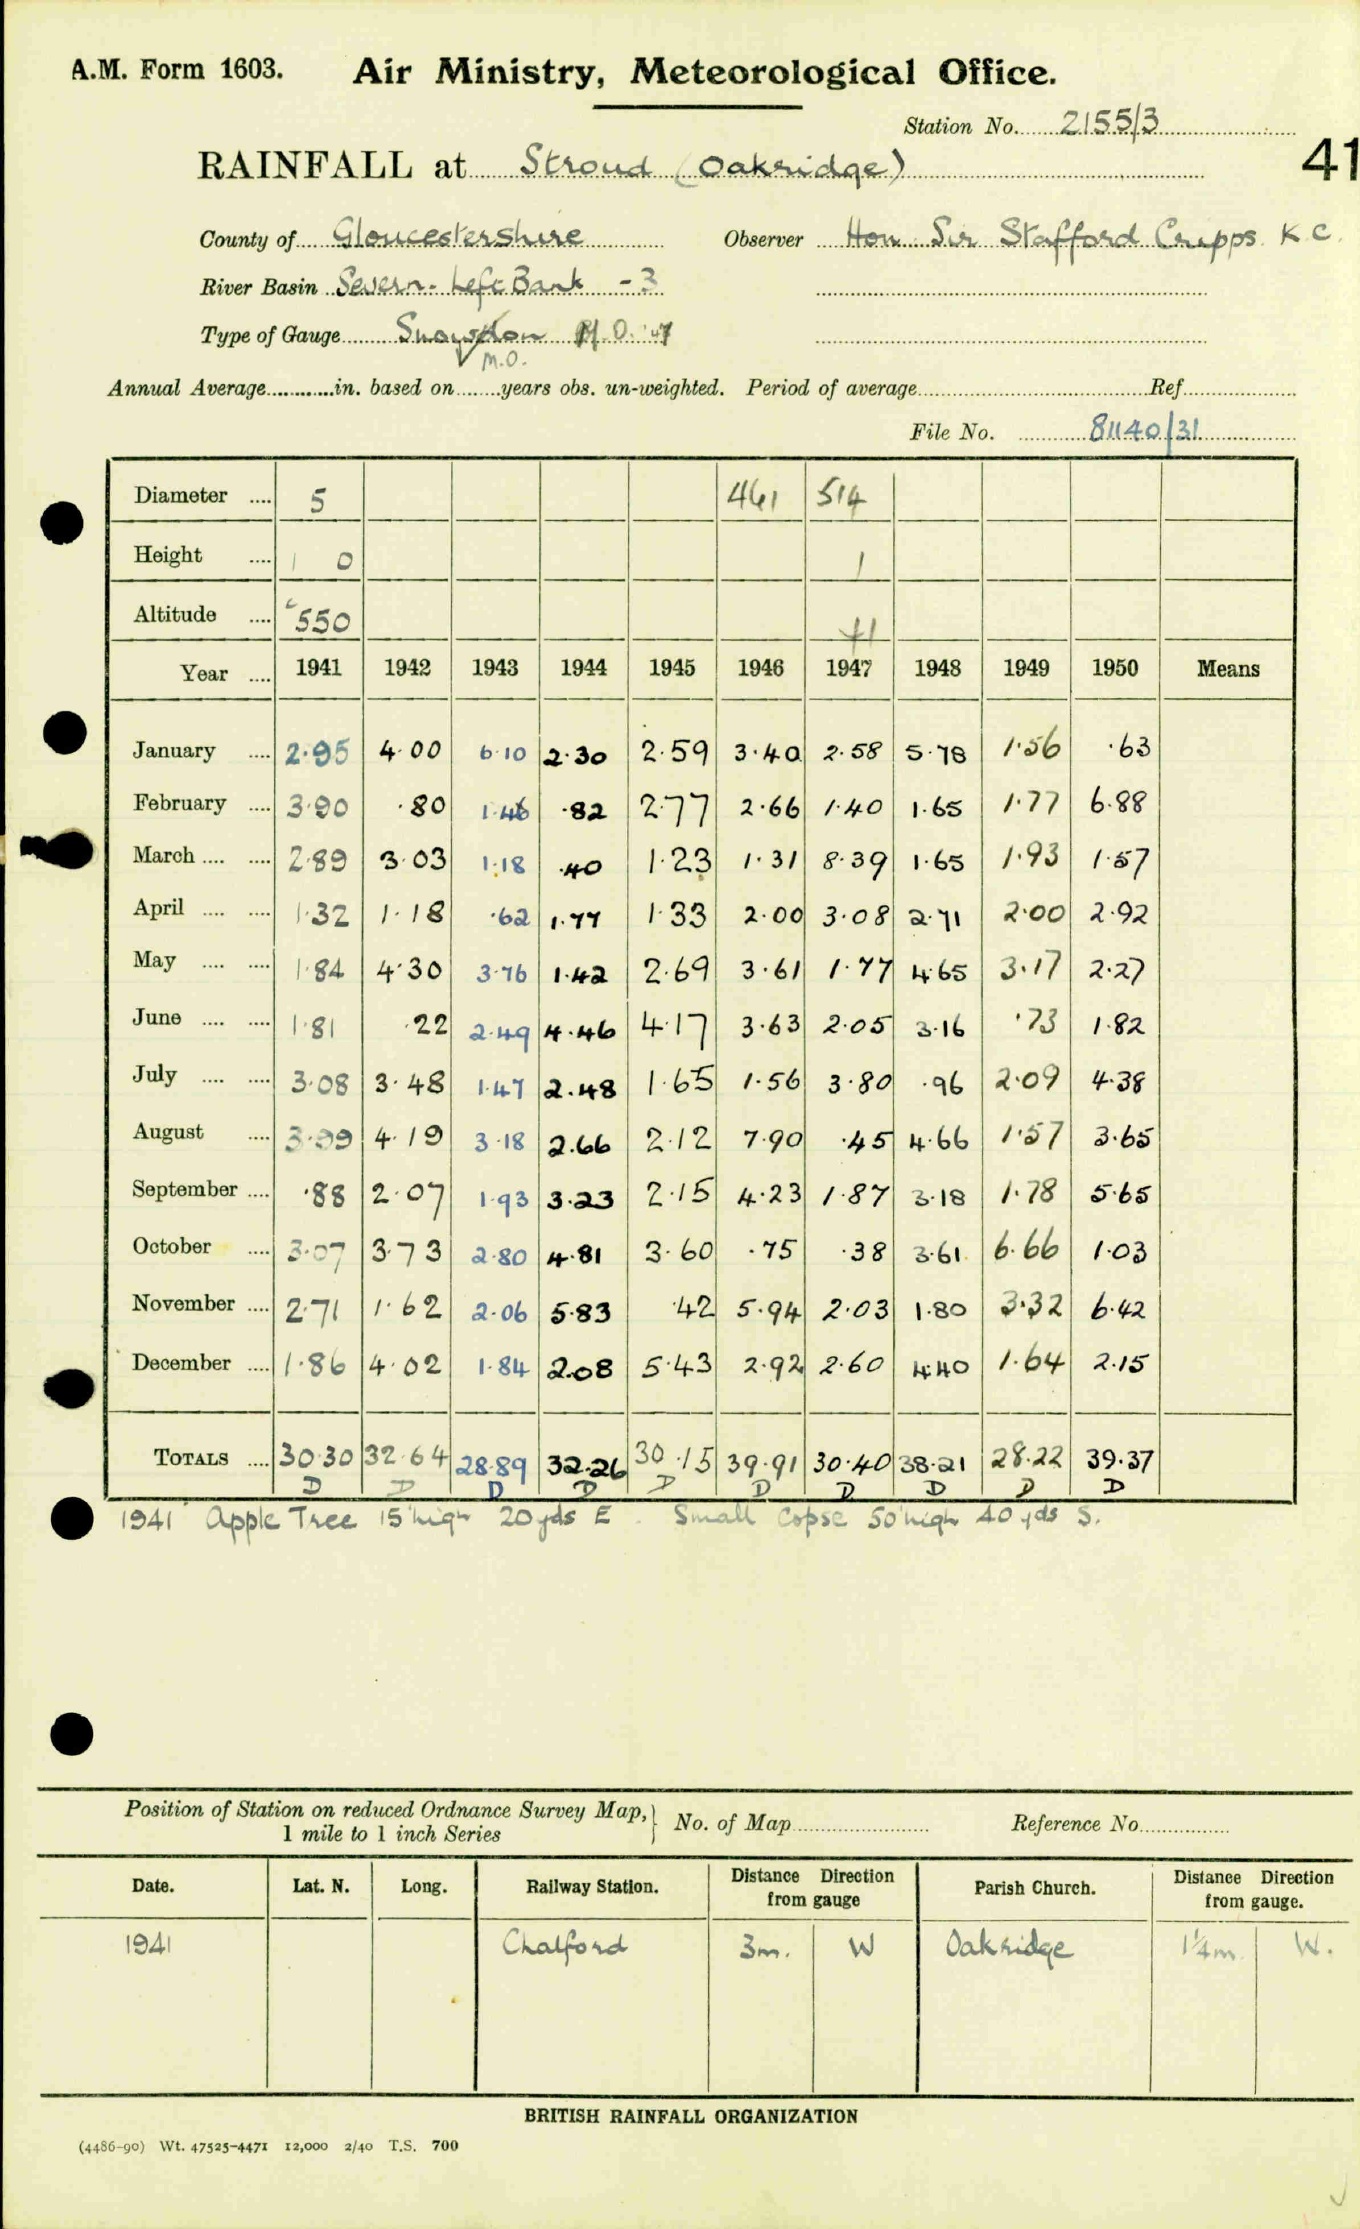 A.M. Form 1603. Air Ministry, Meteorological Office.
Station No. 2155/3
RAINFALL at Stroud (Oakridge) 41
County of Gloucestershire Observer Hon Sir Stafford Cripps K C.
River Basin Severn - Left Bank - 3
Type of Gauge Snowdon M.O. '47
M.O.
Annual Average in. based on years obs. un-weighted. Period of average Ref
File No. 81140/31
Diameter 5 461 514
Height 1 0 1
Altitude 550 41
Year 1941 1942 1943 1944 1945 1946 1947 1948 1949 1950 Means
January 2.95 4.00 6.10 2.30 2.59 3.40 2.58 5.78 1.56 .63
February 3.90 .80 1.46 .82 2.77 2.66 1.40 1.65 1.77 6.88
March 2.89 3.03 1.18 .40 1.23 1.31 8.39 1.65 1.93 1.57
April 1.32 1.18 .62 1.77 1.33 2.00 3.08 2.71 2.00 2.92
May 1.84 4.30 3.76 1.42 2.69 3.61 1.77 4.65 3.17 2.27
June 1.81 .22 2.49 4.46 4.17 3.63 2.05 3.16 .73 1.82
July 3.08 3.48 1.47 2.48 1.65 1.56 3.80 .96 2.09 4.38
August 3.99 4.19 3.18 2.66 2.12 7.90 .45 4.66 1.57 3.65
September .88 2.07 1.93 3.23 2.15 4.23 1.87 3.18 1.78 5.65
October 3.07 3.73 2.80 4.81 3.60 .75 .38 3.61 6.66 1.03
November 2.71 1.62 2.06 5.83 .42 5.94 2.03 1.80 3.32 6.42
December 1.86 4.02 1.84 2.08 5.43 2.92 2.60 4.40 1.64 2.15
TOTALS 30.30 32.64 28.89 32.26 30.15 39.91 30.40 38.21 28.22 39.37
D D D D D D D D D D
1941 Apple Tree 15' high 20 yds E. Small Copse 50' high 40 yds S.
Position of Station on reduced Ordnance Survey Map, 1 mile to 1 inch Series No. of Map Reference No.
Date. Lat. N. Long. Railway Station. Distance Direction from gauge Parish Church. Distance Direction from gauge.
1941 Chalford 3m. W Oakridge 1¼m. W.
BRITISH RAINFALL ORGANIZATION
(4486-90) Wt. 47525-4471 12,000 2/40 T.S. 700